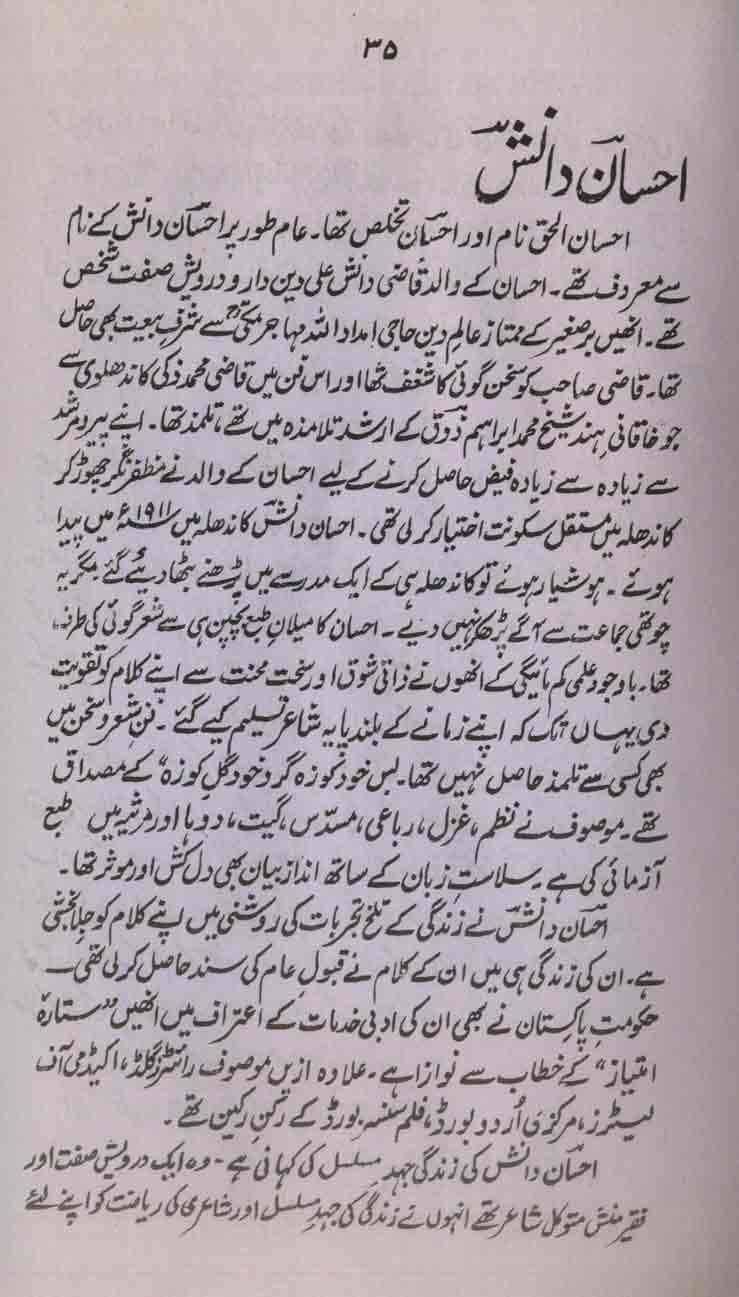 ۳۵
احسانؔ دانشؔ
احسان الحق نام اور احسانؔ تخلص تھا۔ عام طور پر احسانؔ دانش کے نام
سے معروف تھے۔ احسان کے والد قاضی دانش علی دین دار و درویش صفت شخص
تھے۔ انھیں برصغیر کے ممتاز عالمِ دین حاجی امداد اللہ مہاجر مکیؒ سے شرفِ بیعت بھی حاصل
تھا۔ قاضی صاحب کو سخن گوئی کا شغف تھا اور اس فن میں قاضی محمد ذکی کاندھلوی سے
جو خاقانیِ ہند شیخ محمد ابراہیم ذوقؔ کے ارشد تلامذہ میں تھے، تلمذ تھا۔ اپنے پیر و مرشد
سے زیادہ سے زیادہ فیض حاصل کرنے کے لیے احسان کے والد نے مظفر نگر چھوڑ کر
کاندھلہ میں مستقل سکونت اختیار کر لی تھی۔ احسان دانشؔ کاندھلہ میں ۱۹۱۱ء میں پیدا
ہوئے۔ ہوشیار ہوئے تو کاندھلہ ہی کے ایک مدرسے میں پڑھنے بٹھا دیئے گئے مگر یہ
چوتھی جماعت سے آگے پڑھ کر نہیں دیے۔ احسان کا میلانِ طبع بچپن ہی سے شعر گوئی کی طرف
تھا۔ باوجود علمی کم مائیگی کے انھوں نے ذاتی شوق اور سخت محنت سے اپنے کلام کو تقویت
دی یہاں تک کہ اپنے زمانے کے بلند پایہ شاعر تسلیم کیے گئے۔ فنِ شعر و سخن میں
بھی کسی سے تلمذ حاصل نہیں تھا۔ بس خود کوزہ گر و خود گلِ کوزہ“ کے مصداق
تھے۔ موصوف نے نظم، غزل، رباعی، مسدّس، گیت، دوہا اور مرثیہ میں طبع
آزمائی کی ہے۔ سلاستِ زبان کے ساتھ اندازِ بیان بھی دل کش اور موثر تھا۔
احسان دانشؔ نے زندگی کے تلخ تجربات کی روشنی میں اپنے کلام کو جلا بخشی
ہے۔ ان کی زندگی ہی میں ان کے کلام نے قبولِ عام کی سند حاصل کر لی تھی۔
حکومتِ پاکستان نے بھی ان کی ادبی خدمات کے اعتراف میں انھیں ”ستارہ
امتیاز“ کے خطاب سے نوازا ہے۔ علاوہ ازیں موصوف رائٹرز گلڈ، اکیڈمی آف
لیٹرز، مرکزی اُردو بورڈ، فلم سنسر بورڈ کے رکنِ رکین تھے۔
احسان دانش کی زندگی جہدِ مسلسل کی کہانی ہے۔ وہ ایک درویش صفت اور
فقیر منش متوکل شاعر تھے انہوں نے زندگی کی جہدِ مسلسل اور شاعری کی ریاضت کو اپنے لئے